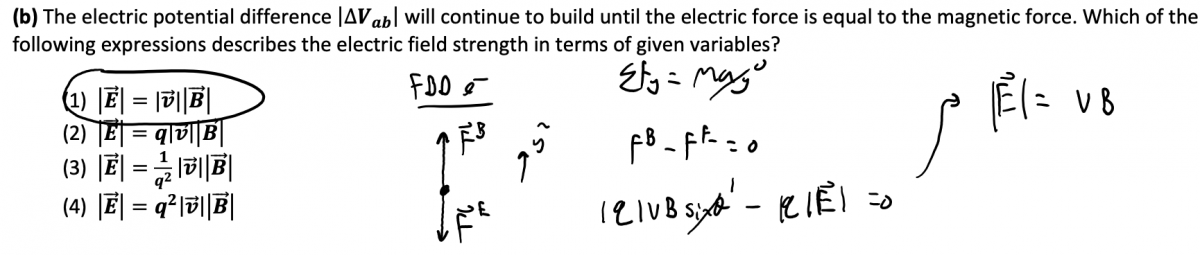 (b) The electric potential difference |ΔV_ab| will continue to build until the electric force is equal to the magnetic force. Which of the
following expressions describes the electric field strength in terms of given variables?
(1) |E⃗| = |v⃗||B⃗|
(2) |E⃗| = q|v⃗||B⃗|
(3) |E⃗| = 1/q² |v⃗||B⃗|
(4) |E⃗| = q²|v⃗||B⃗|
FBD e⁻
F⃗^B
ỹ
F⃗^E
ΣF_y = ma_y 0
F^B - F^E = 0
|q|vB sinθ 1 - q|E⃗| = 0
|E⃗| = vB